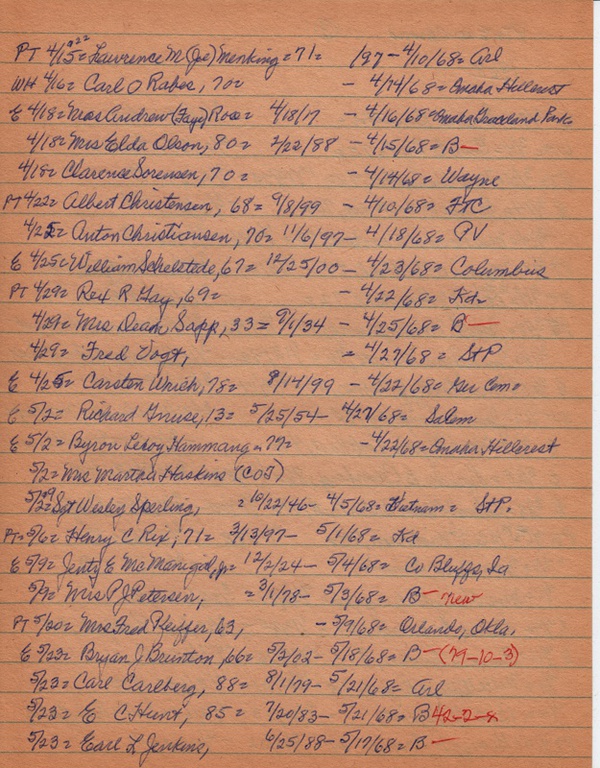 PT 4/15 = Lawrence M (Joe) Menking = 71 = /97 - 4/10/68 = Arl
WH 4/16 = Carl O Rabe, 70 = - 4/14/68 = Omaha Hillcrest
E 4/18 = Mrs Andrew (Faye) Rose = 4/18/17 - 4/16/68 = Omaha Graceland Park
4/18 = Mrs Elda Olson, 80 = 2/22/88 - 4/15/68 = B -
4/18 = Clarence Sorensen, 70 = - 4/14/68 = Wayne
PT 4/22 = Albert Christensen, 68 = 9/8/99 - 4/10/68 = FtC
4/25 = Anton Christiansen, 70 = 11/6/97 - 4/18/68 = PV
E 4/25 = William Schelstede, 67 = 12/25/00 - 4/23/68 = Columbus
PT 4/29 = Rex R Gay, 69 = - 4/22/68 = Kd =
4/29 = Mrs Dean Sapp, 33 = 9/1/34 - 4/25/68 = B -
4/29 = Fred Vogt, = 4/27/68 = StP
E 4/25 = Carsten Wrich, 78 = 8/14/99 - 4/22/68 = Ger Cem =
E 5/2 = Richard Gruse, 13 = 5/25/54 - 4/27/68 = Salem
E 5/2 = Byron Leroy Hammang = 77 = - 4/22/68 = Omaha Hillcrest
5/2 = Mrs Martha Haskins (COT)
5/2 = Sgt Wesley Sperling, = 10/22/46 - 4/5/68 = Vietnam = StP.
PT = 5/6 = Henry C Rix, 71 = 3/13/97 - 5/1/68 = Kd
E 5/9 = Jenty E McManigal, Jr = 12/2/24 - 5/4/68 = Co Bluffs, Ia
5/9 = Mrs P J Petersen, = 3/1/78 - 5/3/68 = B - new
PT 5/20 = Mrs Fred Pfeiffer, 63, - 5/9/68 = Orlando, Okla.
E 5/23 = Bryan J Brunton, 66 = 5/3/02 - 5/18/68 = B - (79-10-3)
5/23 = Carl Carlberg, 88 = 8/1/79 - 5/21/68 = Arl
5/23 = E C Hunt, 85 = 7/20/83 - 5/21/68 = B 42-2-8
5/23 = Earl L Jenkins, 6/25/88 - 5/17/68 = B -